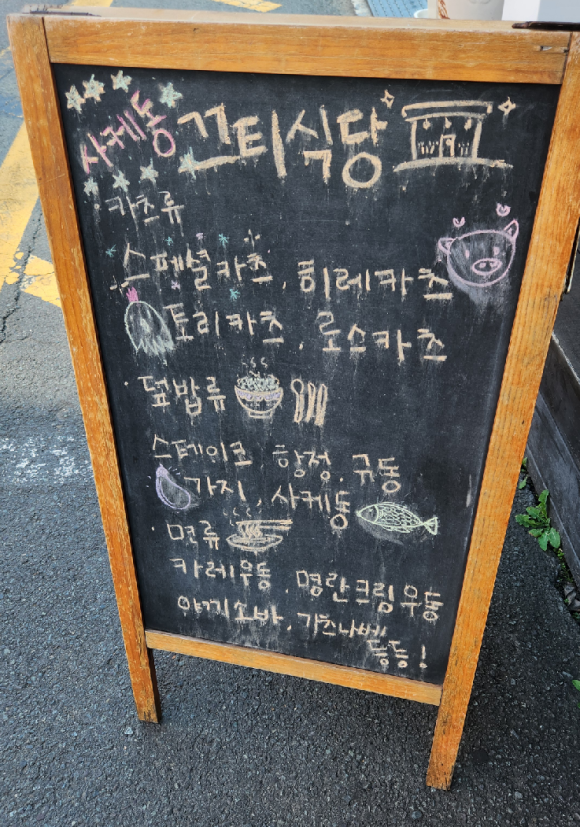 사케동 끄티식당
카츠류
스페셜카츠, 히레카츠
토리카츠, 로스카츠
덮밥류
스테이크, 항정, 규동
가지, 사케동
면류
카레우동, 명란크림우동
야끼소바, 가츠나베
등등!